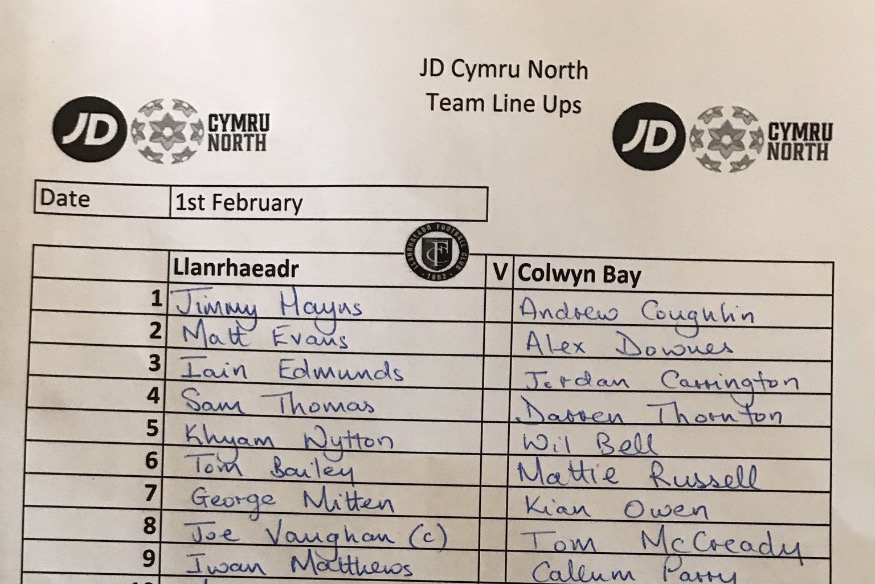 JD Cymru North
Team Line Ups
JD CYMRU NORTH
JD CYMRU NORTH
Date 1st February
LLANRHAEADR FOOTBALL CLUB
Llanrhaeadr V Colwyn Bay
1 Jimmy Mayns Andrew Coughlin
2 Matt Evans Alex Downes
3 Iain Edmunds Jordan Carrington
4 Sam Thomas Darren Thornton
5 Khyam Wytton Wil Bell
6 Tom Bailey Mattie Russell
7 George Mitten Kian Owen
8 Joe Vaughan (c) Tom McCready
9 Iwan Matthews Callum Parry